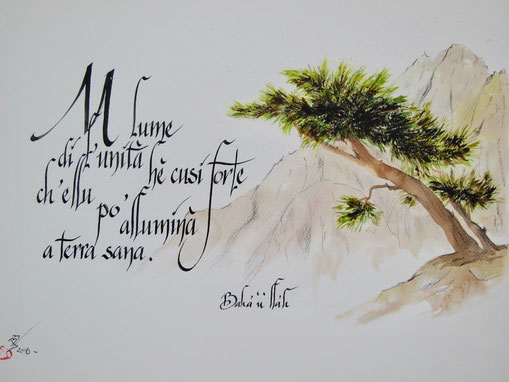 U lume
di l'unità hè cusì forte
ch'ellu po' alluminà
a terra sana.
Bahá'u'lláh